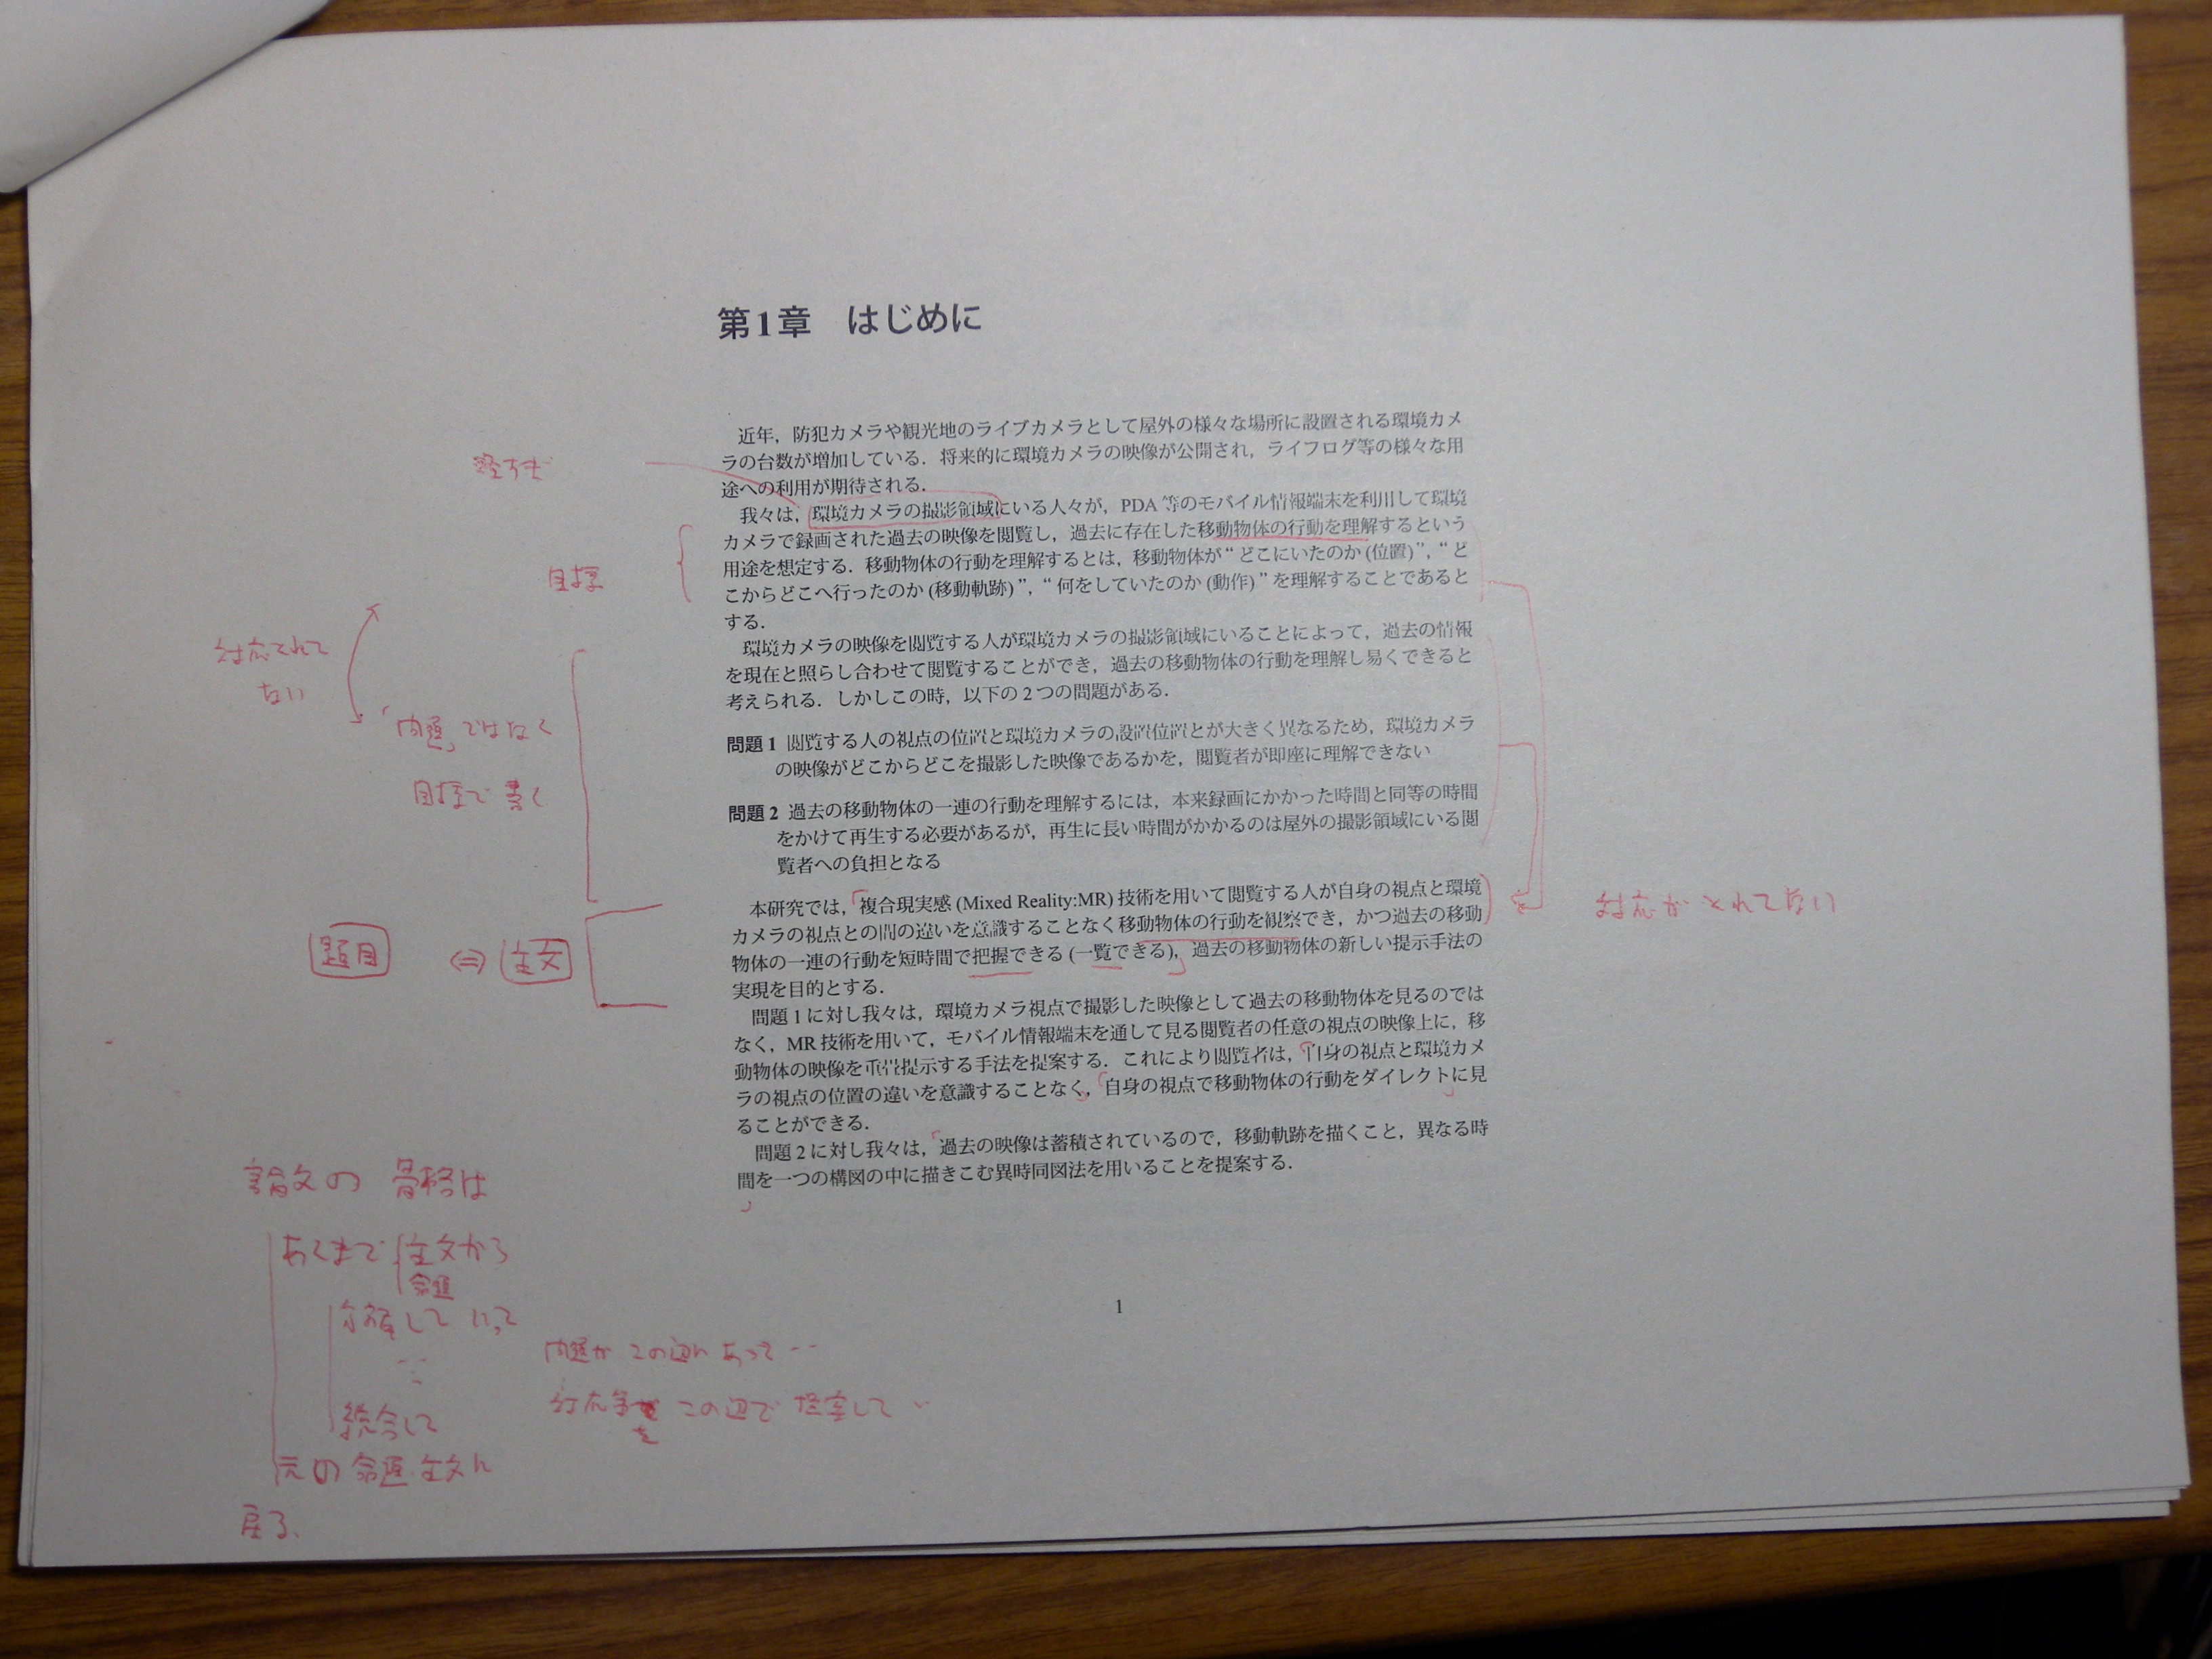 第1章 はじめに
近年，防犯カメラや観光地のライブカメラとして屋外の様々な場所に設置される環境カメ
ラの台数が増加している．将来的に環境カメラの映像が公開され，ライフログ等の様々な用
途への利用が期待される．
我々は，環境カメラの撮影領域にいる人々が，PDA 等のモバイル情報端末を利用して環境
カメラで録画された過去の映像を閲覧し，過去に存在した移動物体の行動を理解するという
用途を想定する．移動物体の行動を理解するとは，移動物体が“どこにいたのか (位置)”，“ど
こからどこへ行ったのか (移動軌跡)”，“何をしていたのか (動作)”を理解することであると
する．
環境カメラの映像を閲覧する人が環境カメラの撮影領域にいることによって，過去の情報
を現在と照らし合わせて閲覧することができ，過去の移動物体の行動を理解し易くできると
考えられる．しかしこの時，以下の2つの問題がある．
問題1 閲覧する人の視点の位置と環境カメラの設置位置とが大きく異なるため，環境カメラ
の映像がどこからどこを撮影した映像であるかを，閲覧者が即座に理解できない
問題2 過去の移動物体の一連の行動を理解するには，本来録画にかかった時間と同等の時間
をかけて再生する必要があるが，再生に長い時間がかかるのは屋外の撮影領域にいる閲
覧者への負担となる
本研究では，「複合現実感 (Mixed Reality:MR) 技術を用いて閲覧する人が自身の視点と環境
カメラの視点との間の違いを意識することなく移動物体の行動を観察でき，かつ過去の移動
物体の一連の行動を短時間で把握できる (一覧できる)」，過去の移動物体の新しい提示手法の
実現を目的とする．
問題1に対し我々は，環境カメラ視点で撮影した映像として過去の移動物体を見るのでは
なく，MR 技術を用いて，モバイル情報端末を通して見る閲覧者の任意の視点の映像上に，移
動物体の映像を重畳提示する手法を提案する．これにより閲覧者は，「自身の視点と環境カメ
ラの視点の位置の違いを意識することなく」，「自身の視点で移動物体の行動をダイレクトに」見
ることができる．
問題2に対し我々は，「過去の映像は蓄積されているので，移動軌跡を描くこと，異なる時
間」を一つの構図の中に描きこむ異時同図法を用いることを提案する．
1
目標
対応とれて
ない
「問題」ではなく
目標で書く
題目 ⇔ 主文
対応がとれてない
論文の 骨格は
あくまで 主文から
命題
分解して いって
統合して
元の 命題 主文に
戻る．
問題が この辺に あって…
対応策を この辺で 提案して…